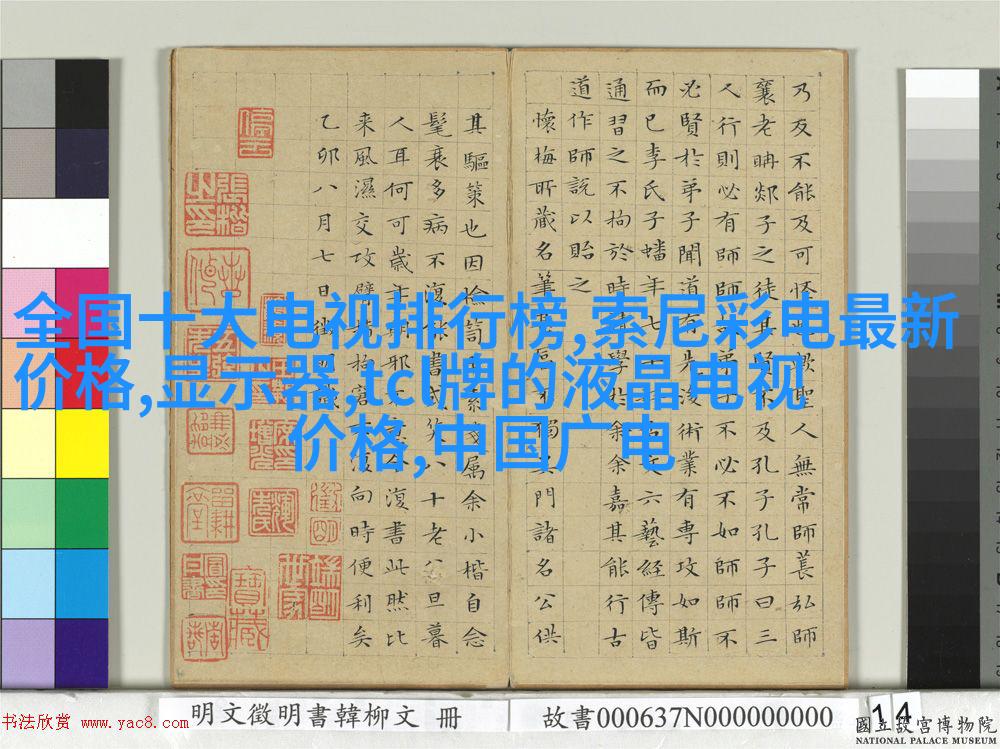 全国十大电视排行榜,索尼彩电最新
价格,显示器,tcl牌的液晶电视
价格,中国广电
乃反不能及可怪歟聖人無常師萇弘師
襄老聃郯子之徒其賢不及孔子孔子曰三
人行則必有師師弟子不必不如師師不
必賢於弟子聞道有先後術業有專攻如斯
而已李氏子蟠年七文六藝經傳皆
通習之不拘於時學於余余嘉其能行古
道作師說以貽之
懷梅所藏名筆不獨門諸名公供
其驅策也因檢笥屬余小楷自念
髦衰多病不復作書矣八十老公旦暮
人耳何可歲邪意今復書此然比
来風濕交攻臂指不復向時便利矣
乙卯八月七日徵明識
明文徵明書韓柳文 冊
故書000637N000000000
14
國立故宮博物院
NATIONAL PALACE MUSEUM
书法欣赏 www.yac8.com